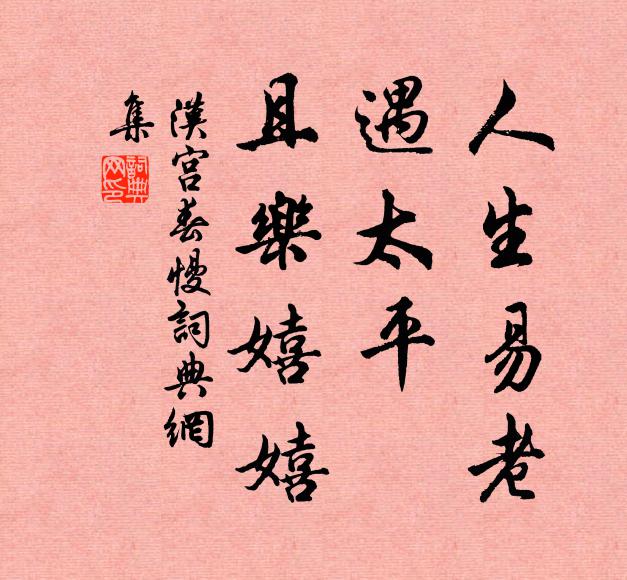 人生易老
遇太平
且樂嬉嬉
漢宮春慢詞典網
集
詞典
网印